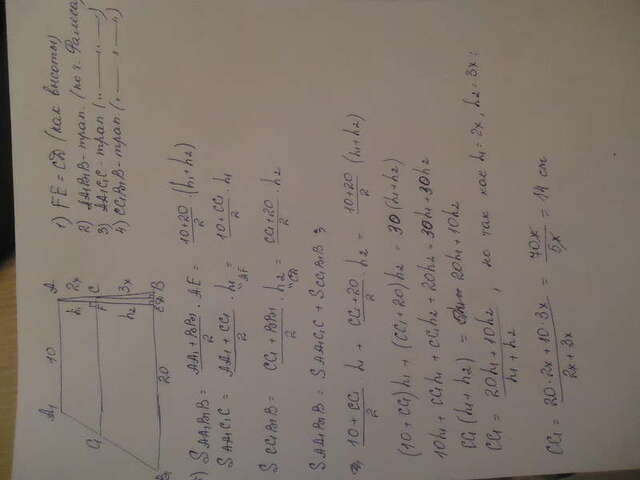 1) FE = CD (как высоты)
2) AA₁B₁B - трап. (по т. Фалеса)
3) AA₁C₁C - трап (
4) CC₁B₁B - трап. (
A₁ 10 A
2x
h₁ F C
C₁
3x
h₂
B₁ 20 E D B
S AA₁B₁B = AA₁ + BB₁ / 2 · AE = 10+20 / 2 · (h₁+h₂)
S AA₁C₁C = AA₁ + CC₁ / 2 · h₁ = 10 + CC₁ / 2 · h₁
AF
S CC₁B₁B = CC₁ + BB₁ / 2 · h₂ = CC₁+20 / 2 · h₂
CD
S AA₁B₁B = S AA₁C₁C + S CC₁B₁B ;
10 + CC₁ / 2 h₁ + CC₁+20 / 2 · h₂ = 10+20 / 2 (h₁+h₂)
(10 + CC₁) h₁ + (CC₁ + 20) h₂ = 30 (h₁+h₂)
10h₁ + CC₁h₁ + CC₁h₂ + 20h₂ = 30h₁ + 30h₂
CC₁ (h₁ + h₂) = 20h₁ + 10h₂
CC₁ = 20h₁ + 10h₂ / h₁ + h₂ , но так как h₁ = 2x, h₂ = 3x :
CC₁ = 20 · 2x + 10 · 3x / 2x + 3x = 70x / 5x = 14 cm